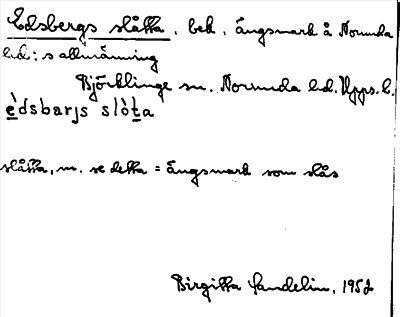 Edsbergs slåtta, bek. ängsmark å Norunda
hd:s allmänning
Björklinge sn. Norunda hd. Upps. l.
èdsbarjs slòta
slåtta, m. se detta = ängsmark som slås
Birgitta Sandelin, 1952